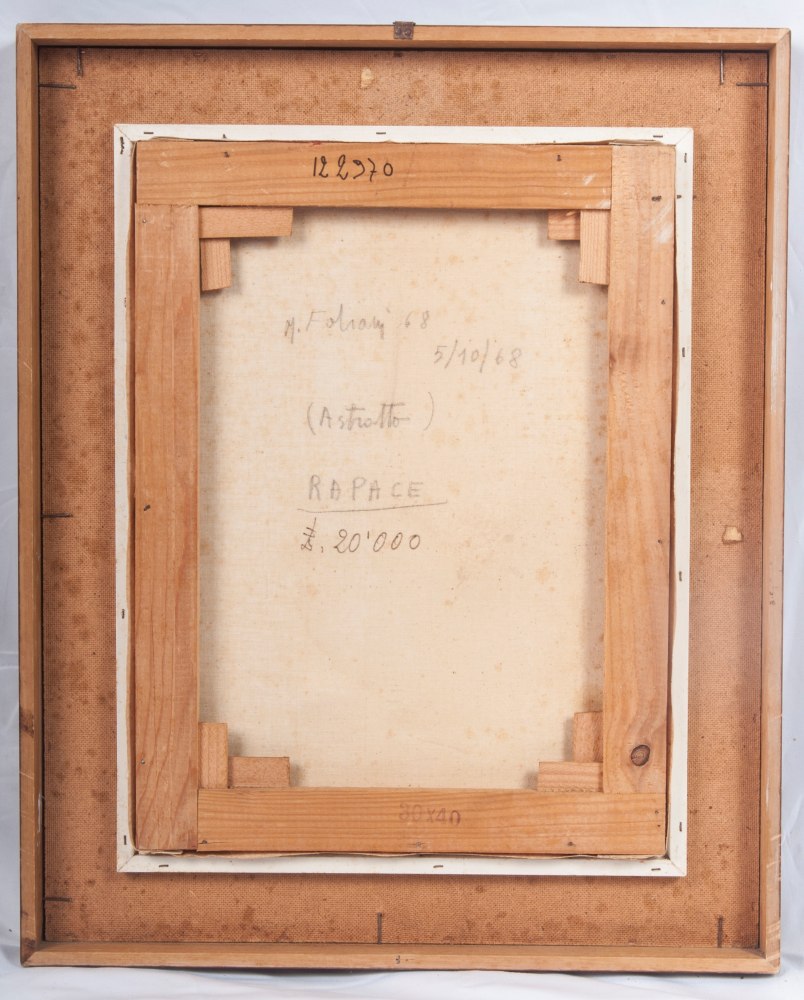 122970
M. Fabiani 68
5/10/68
(Astratto)
RAPACE
₤. 20'000
30x40